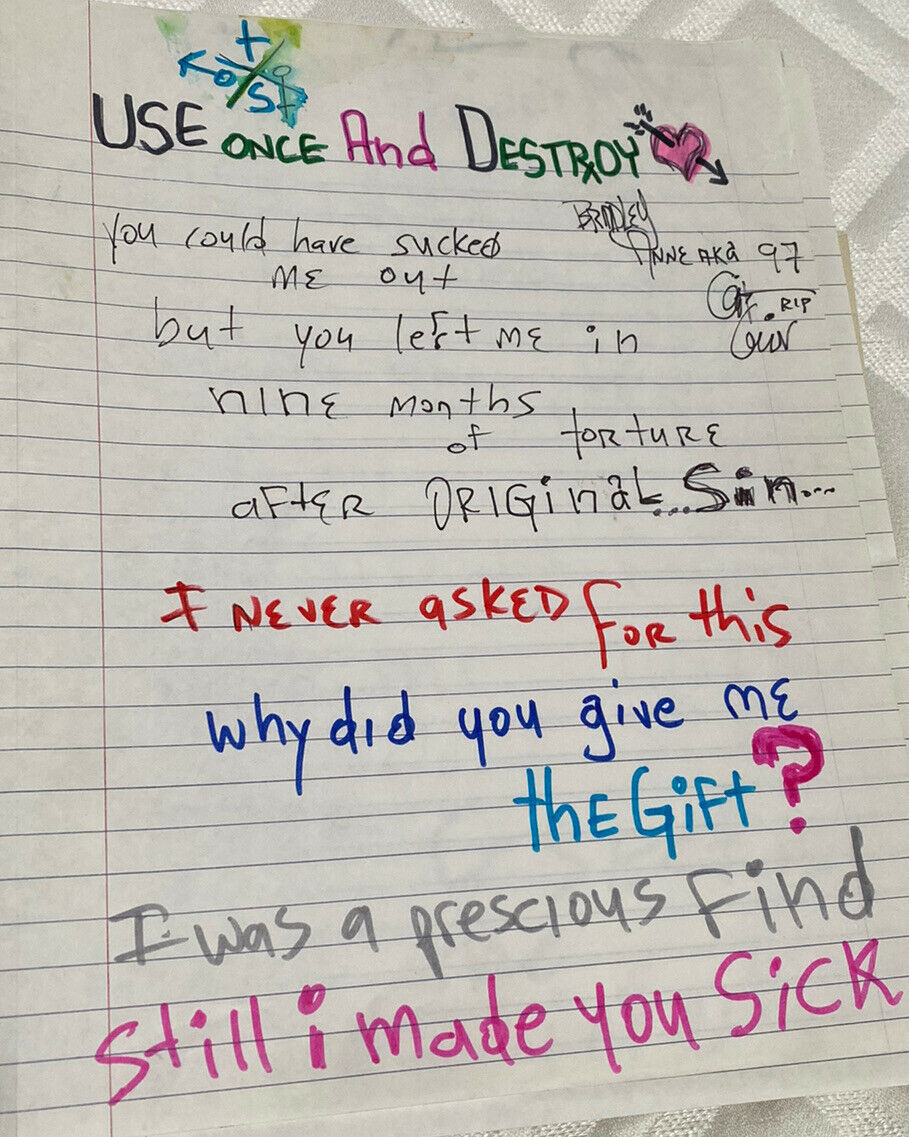 USE ONCE And DESTROY
BRADLEY
ANNE AKA 97
RIP
you could have sucked
ME out
but you left ME in
NINE Months
of torture
after ORIGinaL...Sin...
I NEVER asKED for this
why did you give ME
thE GiFt?
I was a prescious Find
Still i made you Sick